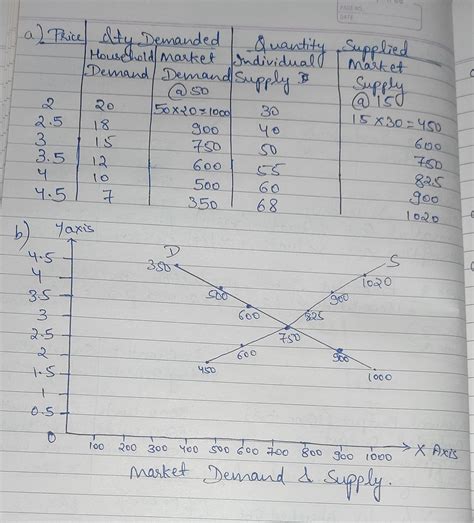 PAGE NO.
DATE
a) Price Qty Demanded Quantity Supplied
Household Market Individual Market
Demand Demand Supply Supply
@ 50 @ 150
2 20 50×20=1000 30 15×30=450
2.5 18 900 40 600
3 15 750 50 750
3.5 12 600 55 825
4 10 500 60 900
4.5 7 350 68 1020
b) Yaxis
D S
4.5 350
4 1020
3.5 500 900
3 600 825
2.5 750
2 600 900
1.5 450 1000
1
0.5
0 100 200 300 400 500 600 700 800 900 1000 X Axis
Market Demand & Supply.